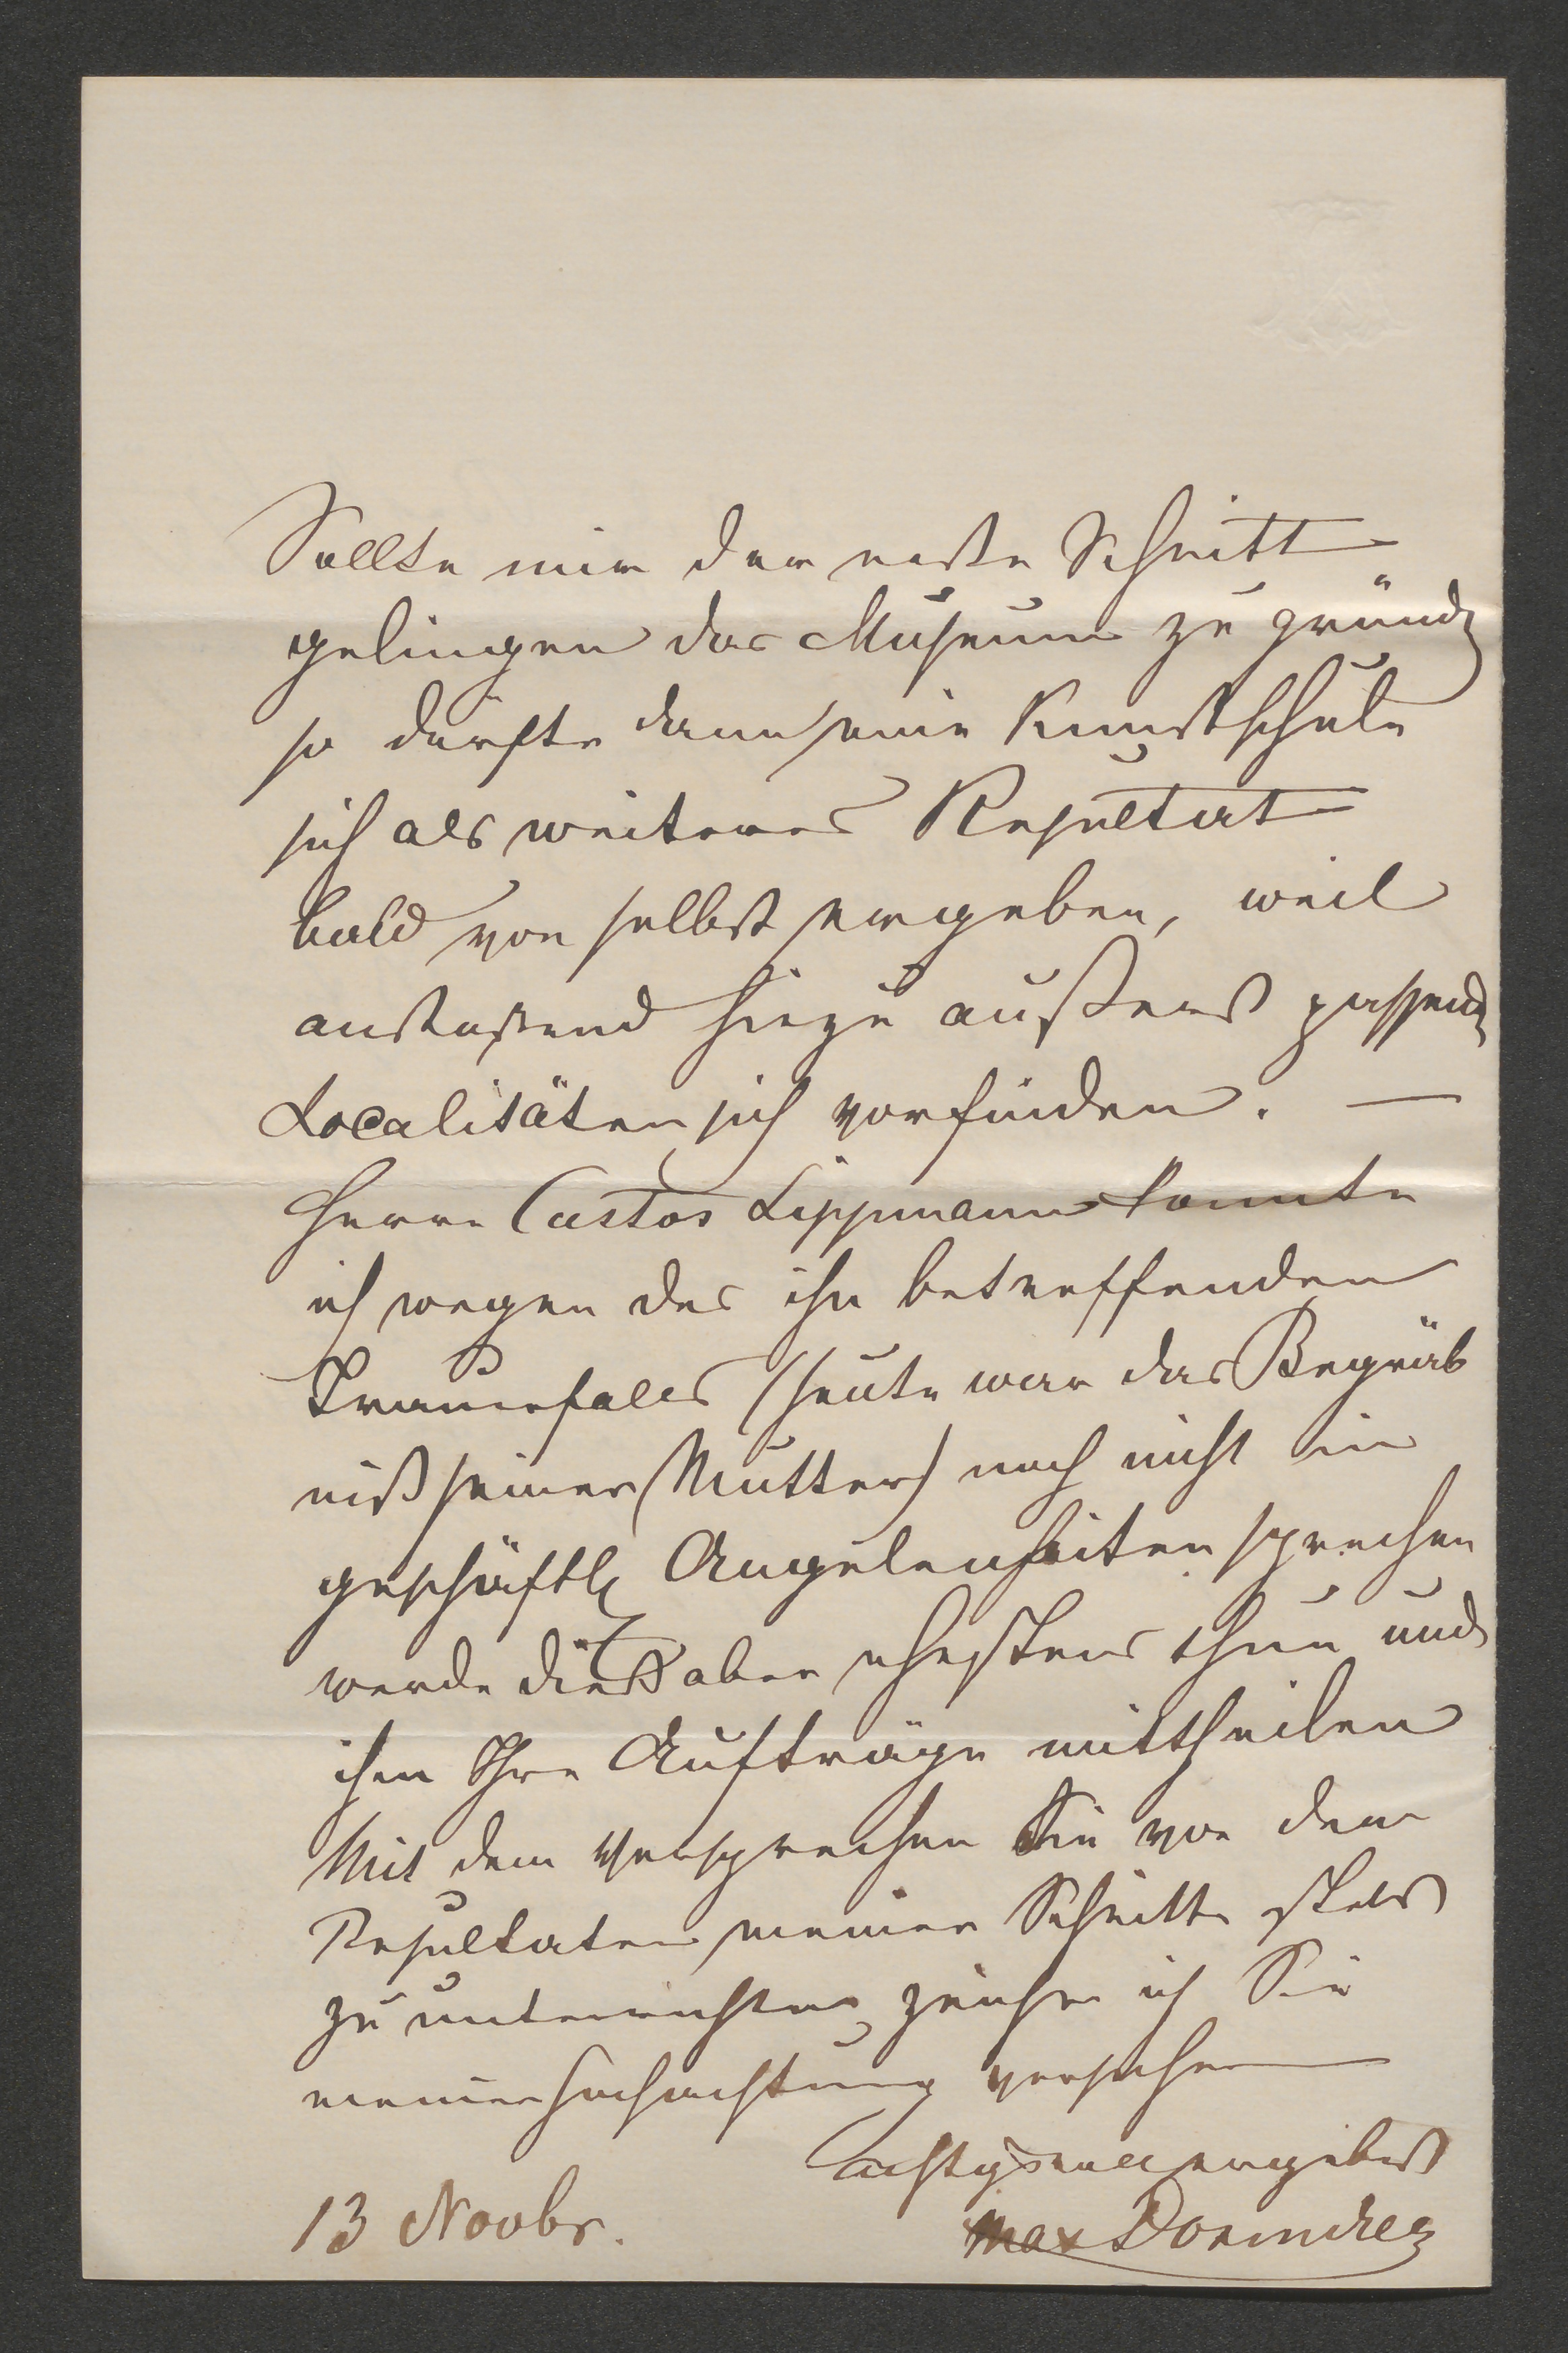 Sollte mir der erste Schritt
gelingen das Museum zu gründ
so dürfte dann eine Kunstschule
sich als weiteres Resultat
bald von selbst ergeben, weil
anstoßend hiezu äußerst passend
Localitäten sich vorfinden. —
Herrn Custos Lippmann konnte
ich wegen des ihn betreffenden
Trauerfalles (heute war das Begräb
niß seiner Mutter) noch nicht in
geschäftl Angelenheiten sprechen
werde dieß aber ehestens thun und
ihm Ihre Aufträge mittheilen
Mit dem Versprechen Sie von den
Resultaten meiner Schritte stets
zu unterrichten, zeichne ich Sie
meiner Hochachtung versichernd
achtungsvoll ergebenst
13 Novbr. Max